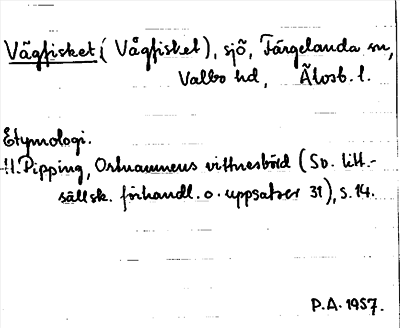 Vägfisket (Vågfisket), sjö, Färgelanda sn,
Valbo hd, Älvsb. l.
Etymologi.
H. Pipping, Ortnamnens vittnesbörd (Sv. litt.-
sällsk. förhandl. o. uppsatser 31), s. 14.
P.A. 1957.